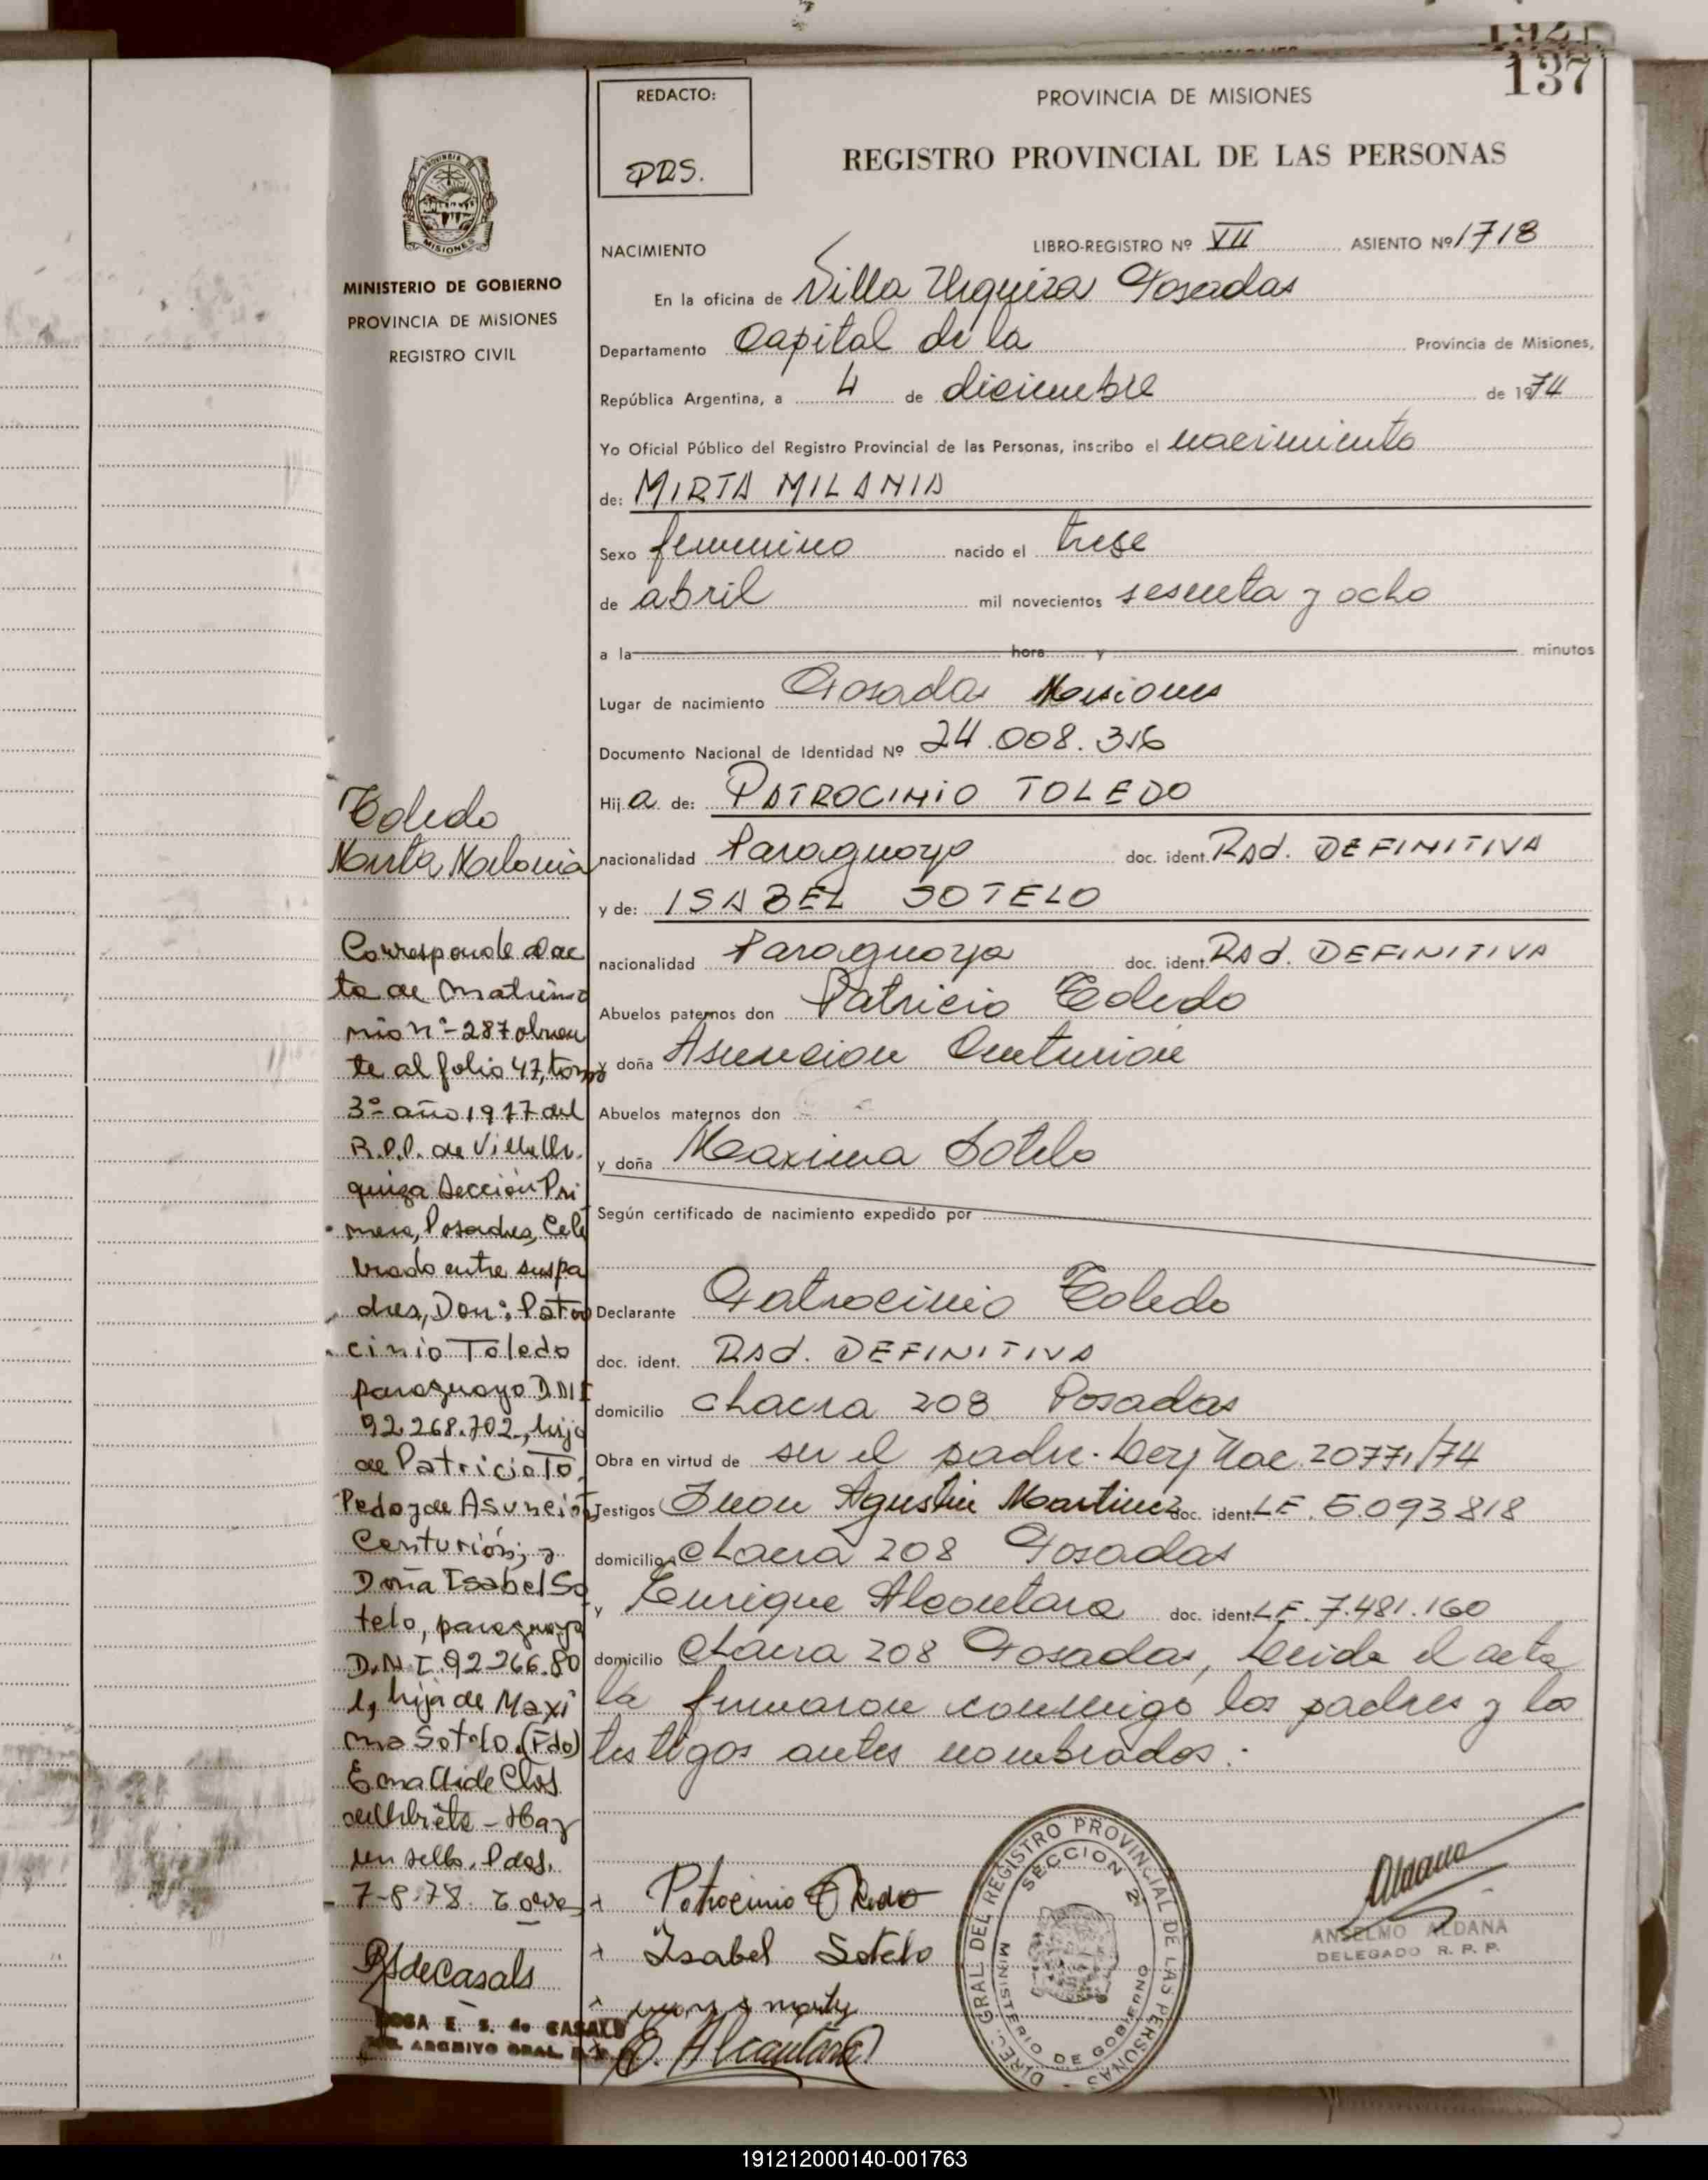 1921
137
REDACTO:
PRS.
PROVINCIA DE MISIONES
REGISTRO PROVINCIAL DE LAS PERSONAS
MINISTERIO DE GOBIERNO
PROVINCIA DE MISIONES
REGISTRO CIVIL
NACIMIENTO
LIBRO-REGISTRO Nº VII ASIENTO Nº 1718
En la oficina de Villa Urquiza Posadas
Departamento Capital de la Provincia de Misiones,
República Argentina, a 4 de diciembre de 1974
Yo Oficial Público del Registro Provincial de las Personas, inscribo el nacimiento
de: MIRTA MILANIA
Sexo femenino nacido el trese
de abril mil novecientos sesenta y ocho
a la hora y minutos
Lugar de nacimiento Posadas Misiones
Documento Nacional de Identidad Nº 24.008.316
Hija de: PATROCINIO TOLEDO
nacionalidad Paraguayo doc. ident. Rad. DEFINITIVA
y de: ISABEL SOTELO
nacionalidad Paraguaya doc. ident. Rad. DEFINITIVA
Abuelos paternos don Patricio Toledo
y doña Asuncion Centurion
Abuelos maternos don
y doña Maxima Sotelo
Según certificado de nacimiento expedido por
Declarante Patrocinio Toledo
doc. ident. Rad. DEFINITIVA
domicilio chacra 208 Posadas
Obra en virtud de ser el padre. Ley Nac. 20771/74
Testigos Juan Agustin Martinez doc. ident. LE. 5.093818
domicilio chacra 208 Posadas
y Enrique Alcantara doc. ident. LE. 7.481.160
domicilio chacra 208 Posadas, Leida el acta
la firmaron conmigo los padres y los
testigos antes nombrados.
Toledo
Mirta Milania
Corresponde al ac
ta de matrimo
nio nº 287 obran
te al folio 47, tomo
3º año 1977 del
R.P.P. de Villa Ur
quiza Sección Pri
mera, Posadas, Cele
brado entre sus pa
dres, Don: Patro
cinio Toledo
paraguayo D.N.I
92.268.702, hijo
de Patricio To
ledo y de Asunción
Centurión; y
Doña Isabel So
telo, paraguaya
D.N.I. 92266.80
1, hija de Maxi
ma Sotelo. (Fdo)
Hay
un sello. Pdas.
7-8-78.
RSdeCasals
ROSA E. S. de CASALS
ARCHIVO GRAL.
Patrocinio Toledo
Isabel Sotelo
E. Alcantara
DIREC. GRAL DEL REGISTRO PROVINCIAL DE LAS PERSONAS
SECCION 2ª
MINISTERIO DE GOBIERNO
Aldana
ANSELMO ALDANA
DELEGADO R. P. P.
191212000140-001763